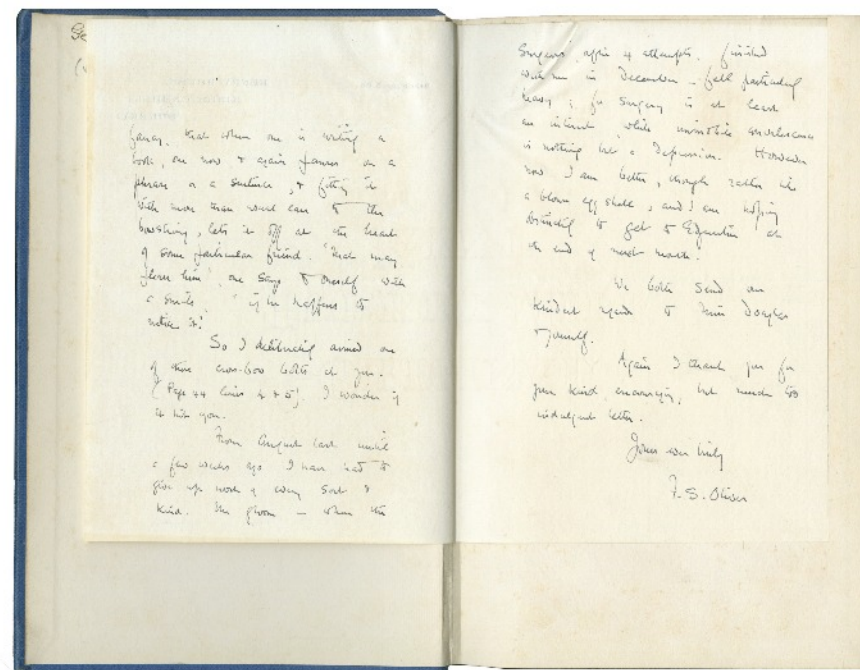 fancy, that when one is writing a
book, one now & again [pauses] on a
phrase or a sentence, & fitting it
with more than usual care to the
bowstring, lets it off at the heart
of some particular friend. "That may
please him", one says to oneself with
a smile, "if he happens to
notice it!"
So I deliberately aimed one
of these cross-bow bolts at you.
(Page 44 lines 4 & 5). I wonder if
it hit you.
From August last until
a few weeks ago I have had to
give up work of every sort &
kind. The gloom – when the
Surgeons, after 4 attempts, finished
with me in December – fell particularly
heavy; for surgery is at least
an interest, while convalescence
is nothing but a Depression. However
now I am better, though rather like
a blown egg shell, and I am hoping
to get to Edgerston at
the end of next month.
We both send our
kindest regards to Miss Douglas
& yourself.
Again I thank you for
your kind, encouraging, but much too
indulgent letter.
Yours ever truly
F. S. Oliver